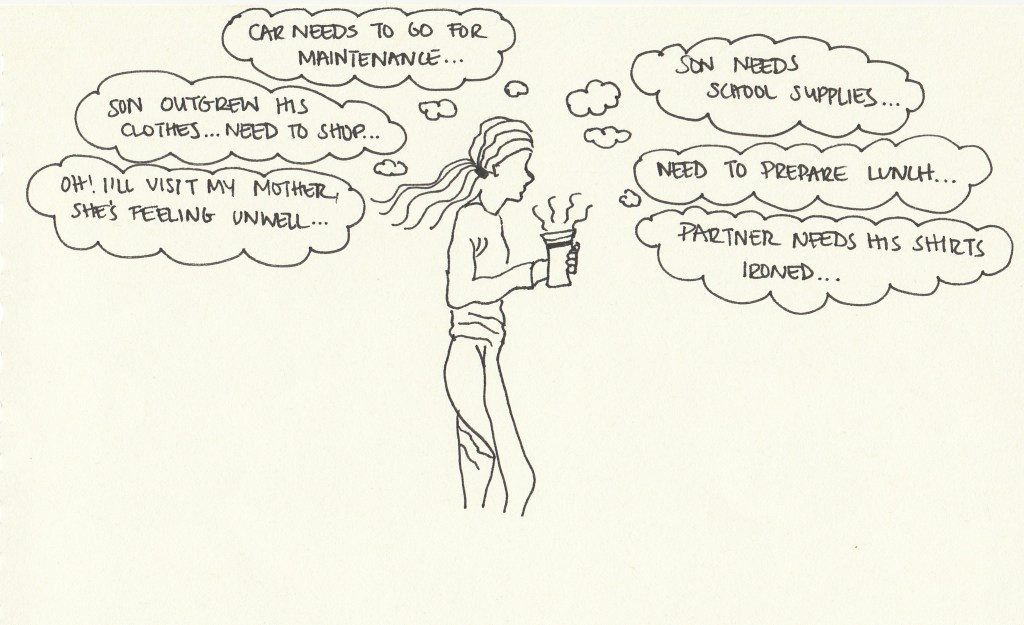 CAR NEEDS TO GO FOR
MAINTENANCE...
SON OUTGREW HIS
CLOTHES...NEED TO SHOP...
OH! I'LL VISIT MY MOTHER,
SHE'S FEELING UNWELL...
SON NEEDS
SCHOOL SUPPLIES...
NEED TO PREPARE LUNCH...
PARTNER NEEDS HIS SHIRTS
IRONED...